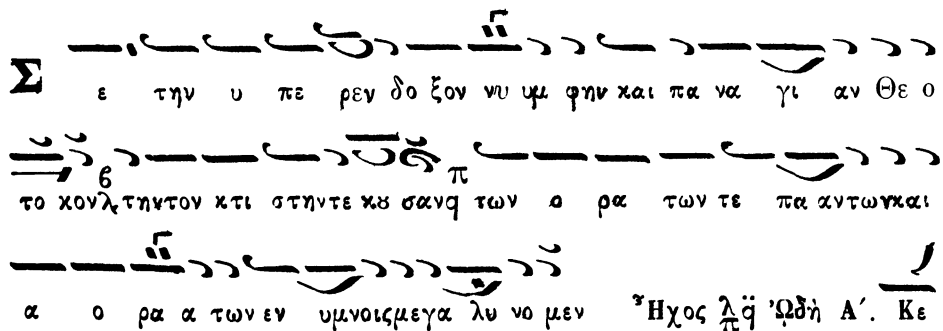 Σε την υ περ ρεν δο ξον νυ υμ φην και πα να γι αν Θε ο
το κον την τον κτι στην τε κȣ σαν των ο ρα των τε πα αν των και
α ο ρα α των εν υμνοις μεγα λυ νο μεν Ἦχος λ π q̈ ᾨδὴ Α΄. Κε